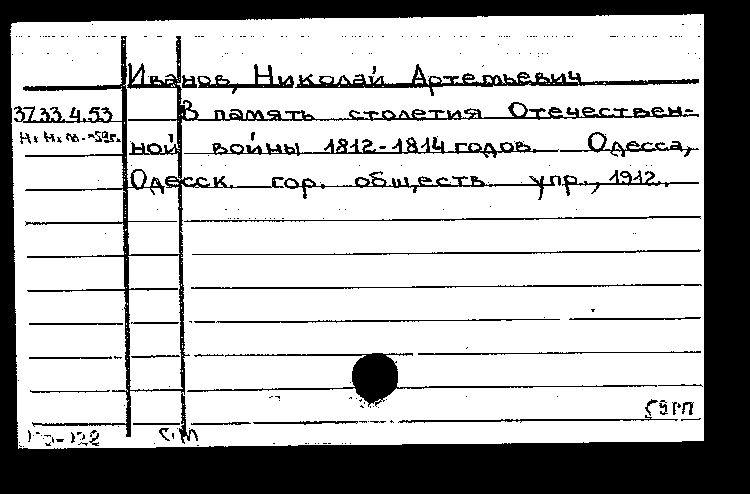 Иванов, Николай Артемьевич
3733.4.53 В память столетия Отечествен-
ной войны 1812-1814 годов. Одесса,
Одесск. гор. обществ. упр., 1912.
59гп